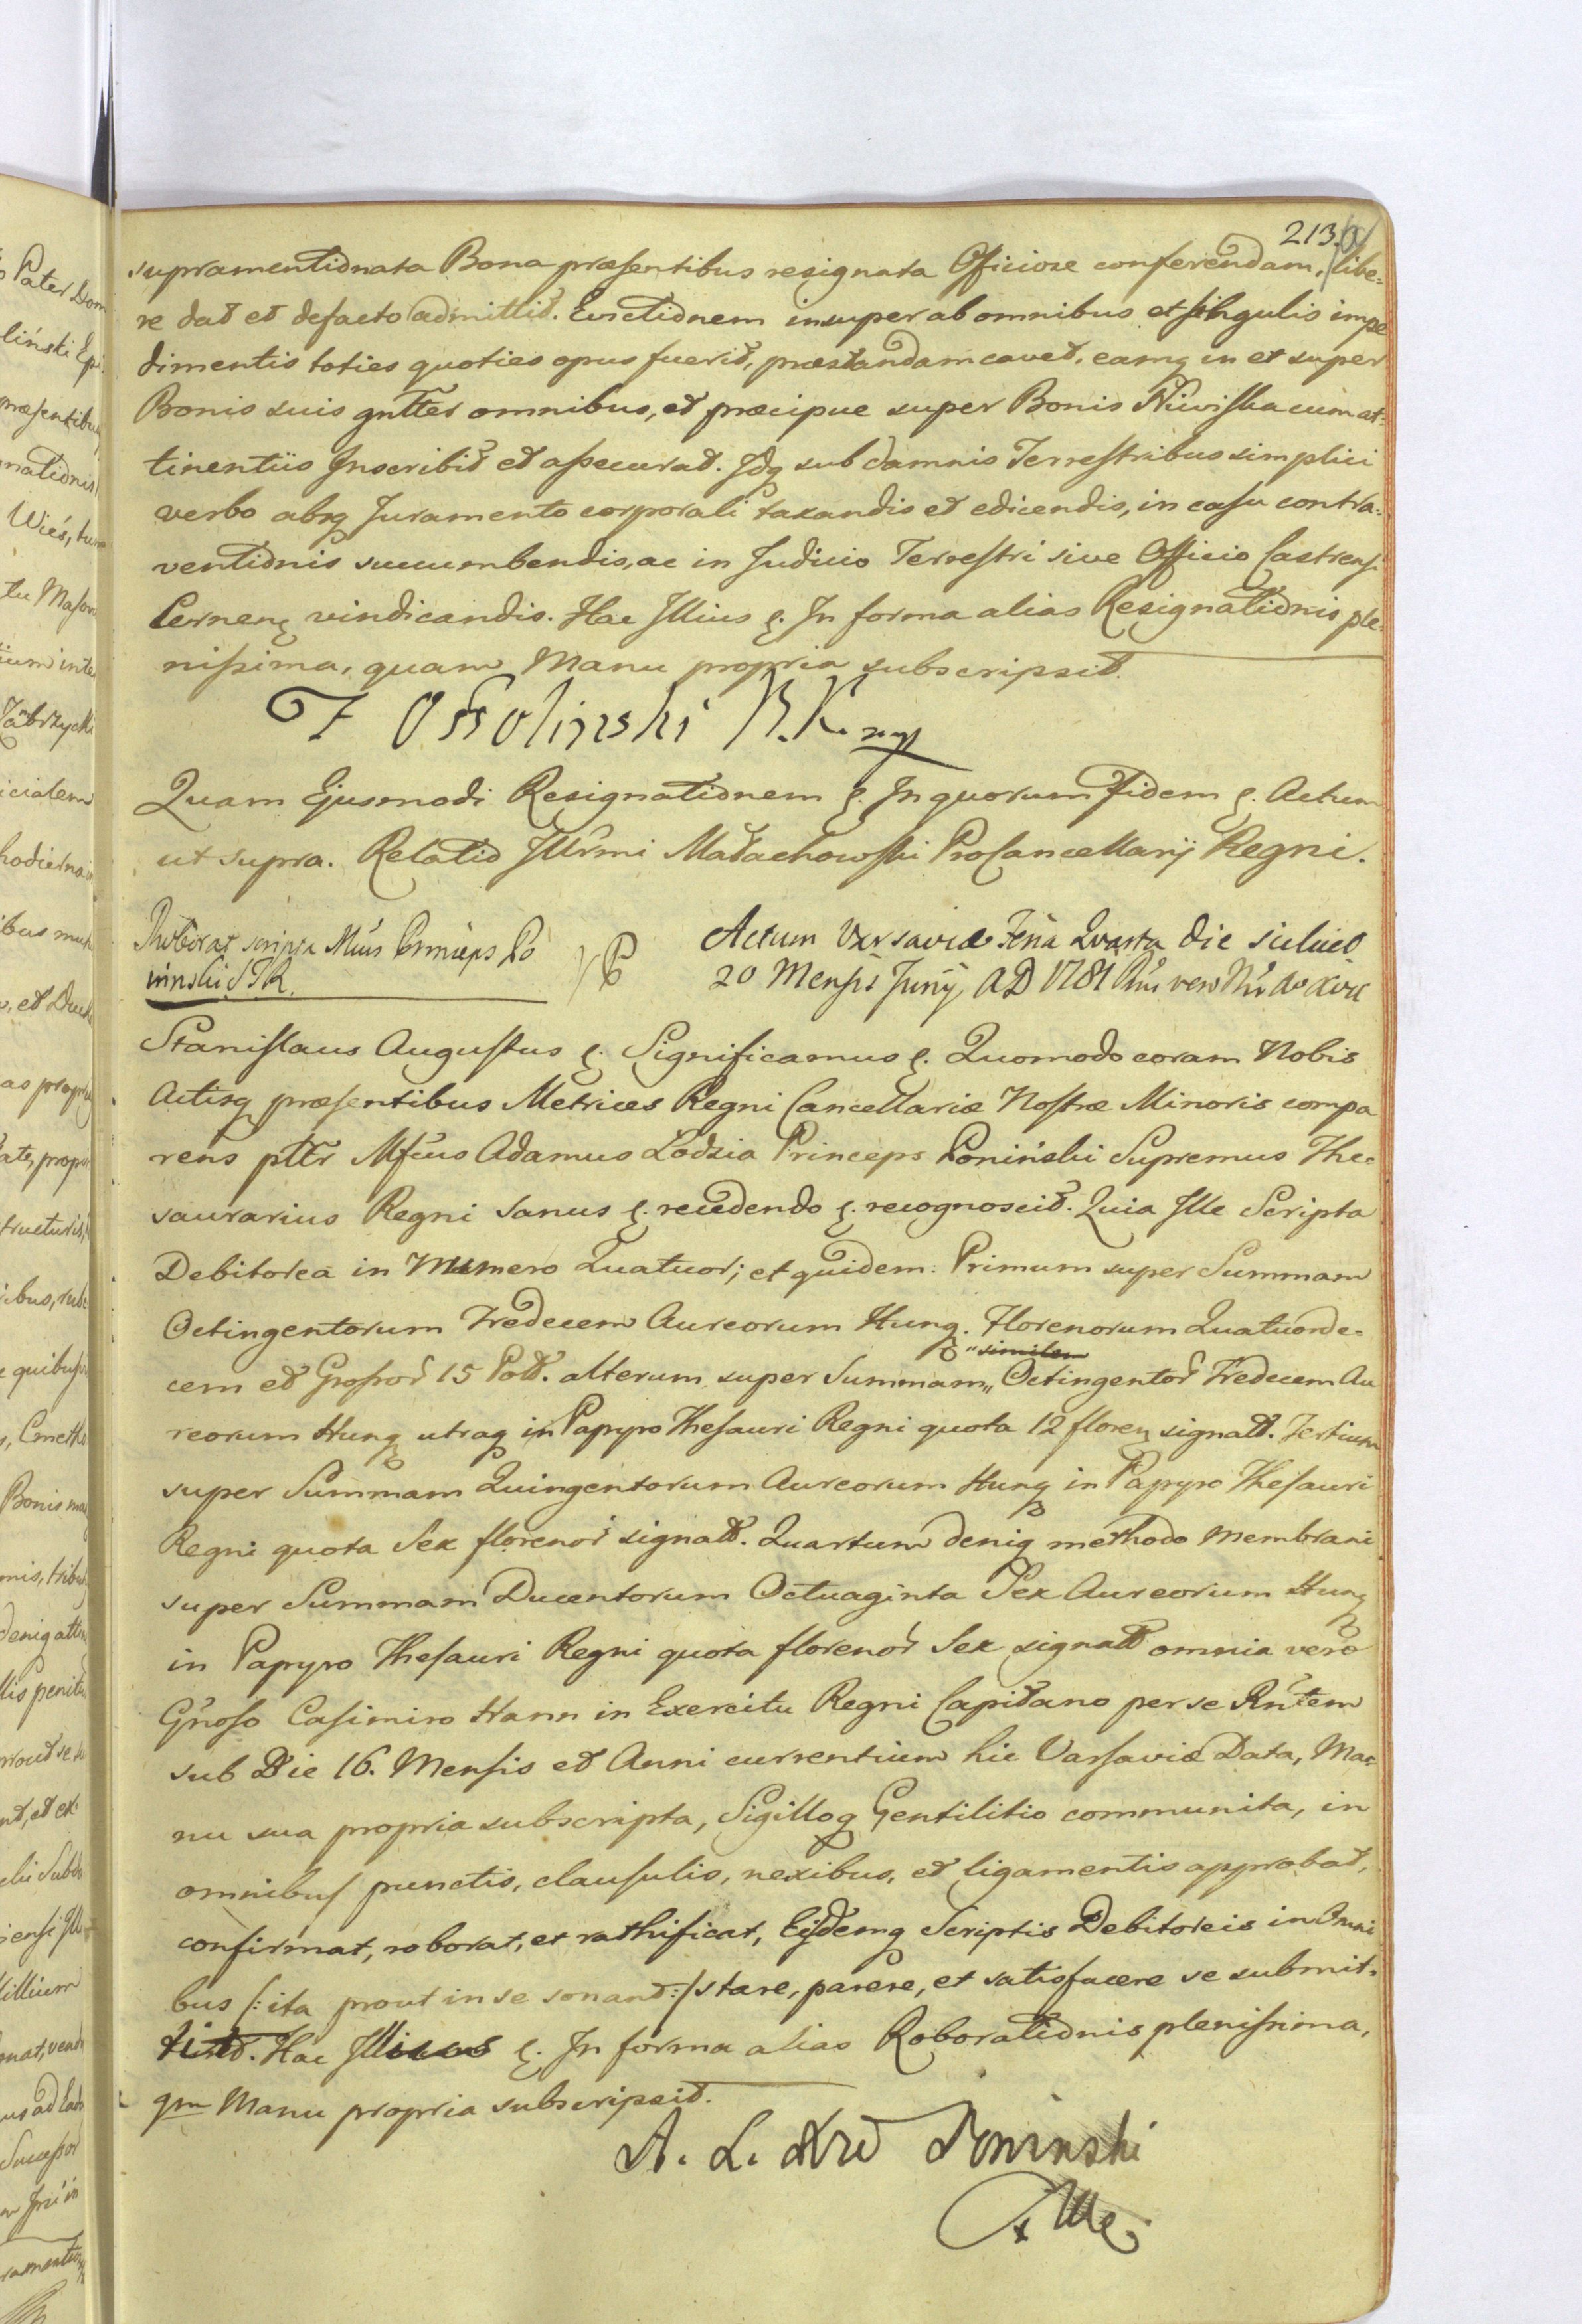 213.
supramentionata Bona præsentibus resignata Officiose conferendam, libe=
re dat et defacto admittit. Evictionem insuper ab omnibus et singulis impe
dimentis toties quoties opus fuerit, præstandam cavet, eamq in et super
Bonis suis gntter omnibus, et præcipue super Bonis Niwiska cum at=
tinentiis Inscribit et assecurat. Idq sub damnis Terrestribus simplici
verbo absq Juramento corporali taxandis et edicendis, in casu contra=
ventionis succumbendis, ac in Judicio Terrestri sive Officio Castrensi
Cernen vindicandis. Hac Illius &. In forma alias Resignationis ple=
nissima, quam Manu propria subscripsit.
Ossolinski
Quam Ejusmodi Resignationem &. In quorum Fidem &. Actum
ut supra. Relatio Illrmi Małachowski ProCancellarij Regni.
Roborat scripta Princeps Po
ninski S T R.
Actum Varsaviæ Feria Quarta die scilicet
20 Mensis Junij, A D 1781
Stanislaus Augustus &. Significamus &. Quomodo coram Nobis
Actisq præsentibus Metrices Regni Cancellariæ Nostræ Minoris compa
rens pttr Mfcus Adamus Łodzia Princeps Poniński Supremus The=
saurarius Regni sanus &. recedendo &. recognoscit. Quia Ille Scripta
Debitorea in Numero Quatuor; et quidem: Primum super Summam
Octingentorum Tredecem Aureorum Hung. Florenorum Quatuorde=
similem
cem et Grossor 15 Poll. alterum super Summam,, Octingentor Tredecem Au
reorum Hung utraq in Papyro Thesauri Regni quota 12 floren signatt. Tertium
super Summam Quingentorum Aureorum Hung in Papyro Thesauri
Regni quota Sex florenor signatt. Quartum deniq methodo Membrani
super Summam Ducentorum Octuaginta Sex Aureorum Hung
in Papyro Thesauri Regni quota florenor Sex signatt omnia vero
Gnoso Casimiro Hann in Exercitu Regni Capitano per se Rntem
sub Die 16. Mensis et Anni currentium hic Varsaviæ Data, Ma=
nu sua propria subscripta, Sigilloq Gentilitio communita, in
omnibus punctis, clausulis, nexibus, et ligamentis approbat,
confirmat, roborat, et rathificat, Eisdemq Scriptis Debitoreis in Omni
bus /: ita prout in se sonant :/ stare, parere, et satisfacere se submit=
tit. Hac Illius &. In forma alias Roborationis plenissima,
qm Manu propria subscripsit.
A. Ł. Poninski